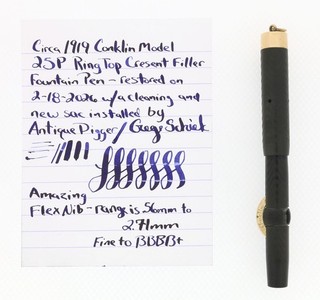 Circa 1919 Conklin Model
25P Ring Top Cresent Filler
Fountain Pen - restored on
2-18-2026 w/a cleaning and
new sac installed by
Antique Digger/
Amazing
Flex Nib - range is .56mm to
2.71mm
Fine to BBBB+